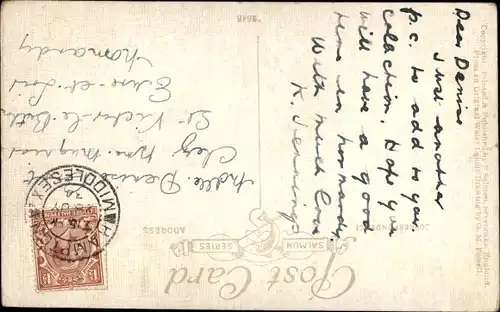 Dear Denise
Just another
p.c. to add to your
colection. Hope you
will have a good
time in Normandy
With much Love
K. Jennings
Mdlle. Denise
Chez Mme.
St Victor le
Eure-et-Loir
Normandy
Post Card
SALMON SERIES
CORRESPONDENCE
ADDRESS
HAMPTON
MIDDLESEX
Copyright. Printed & Published by J. Salmon, Sevenoaks, England.
From an Original Water Colour Drawing by